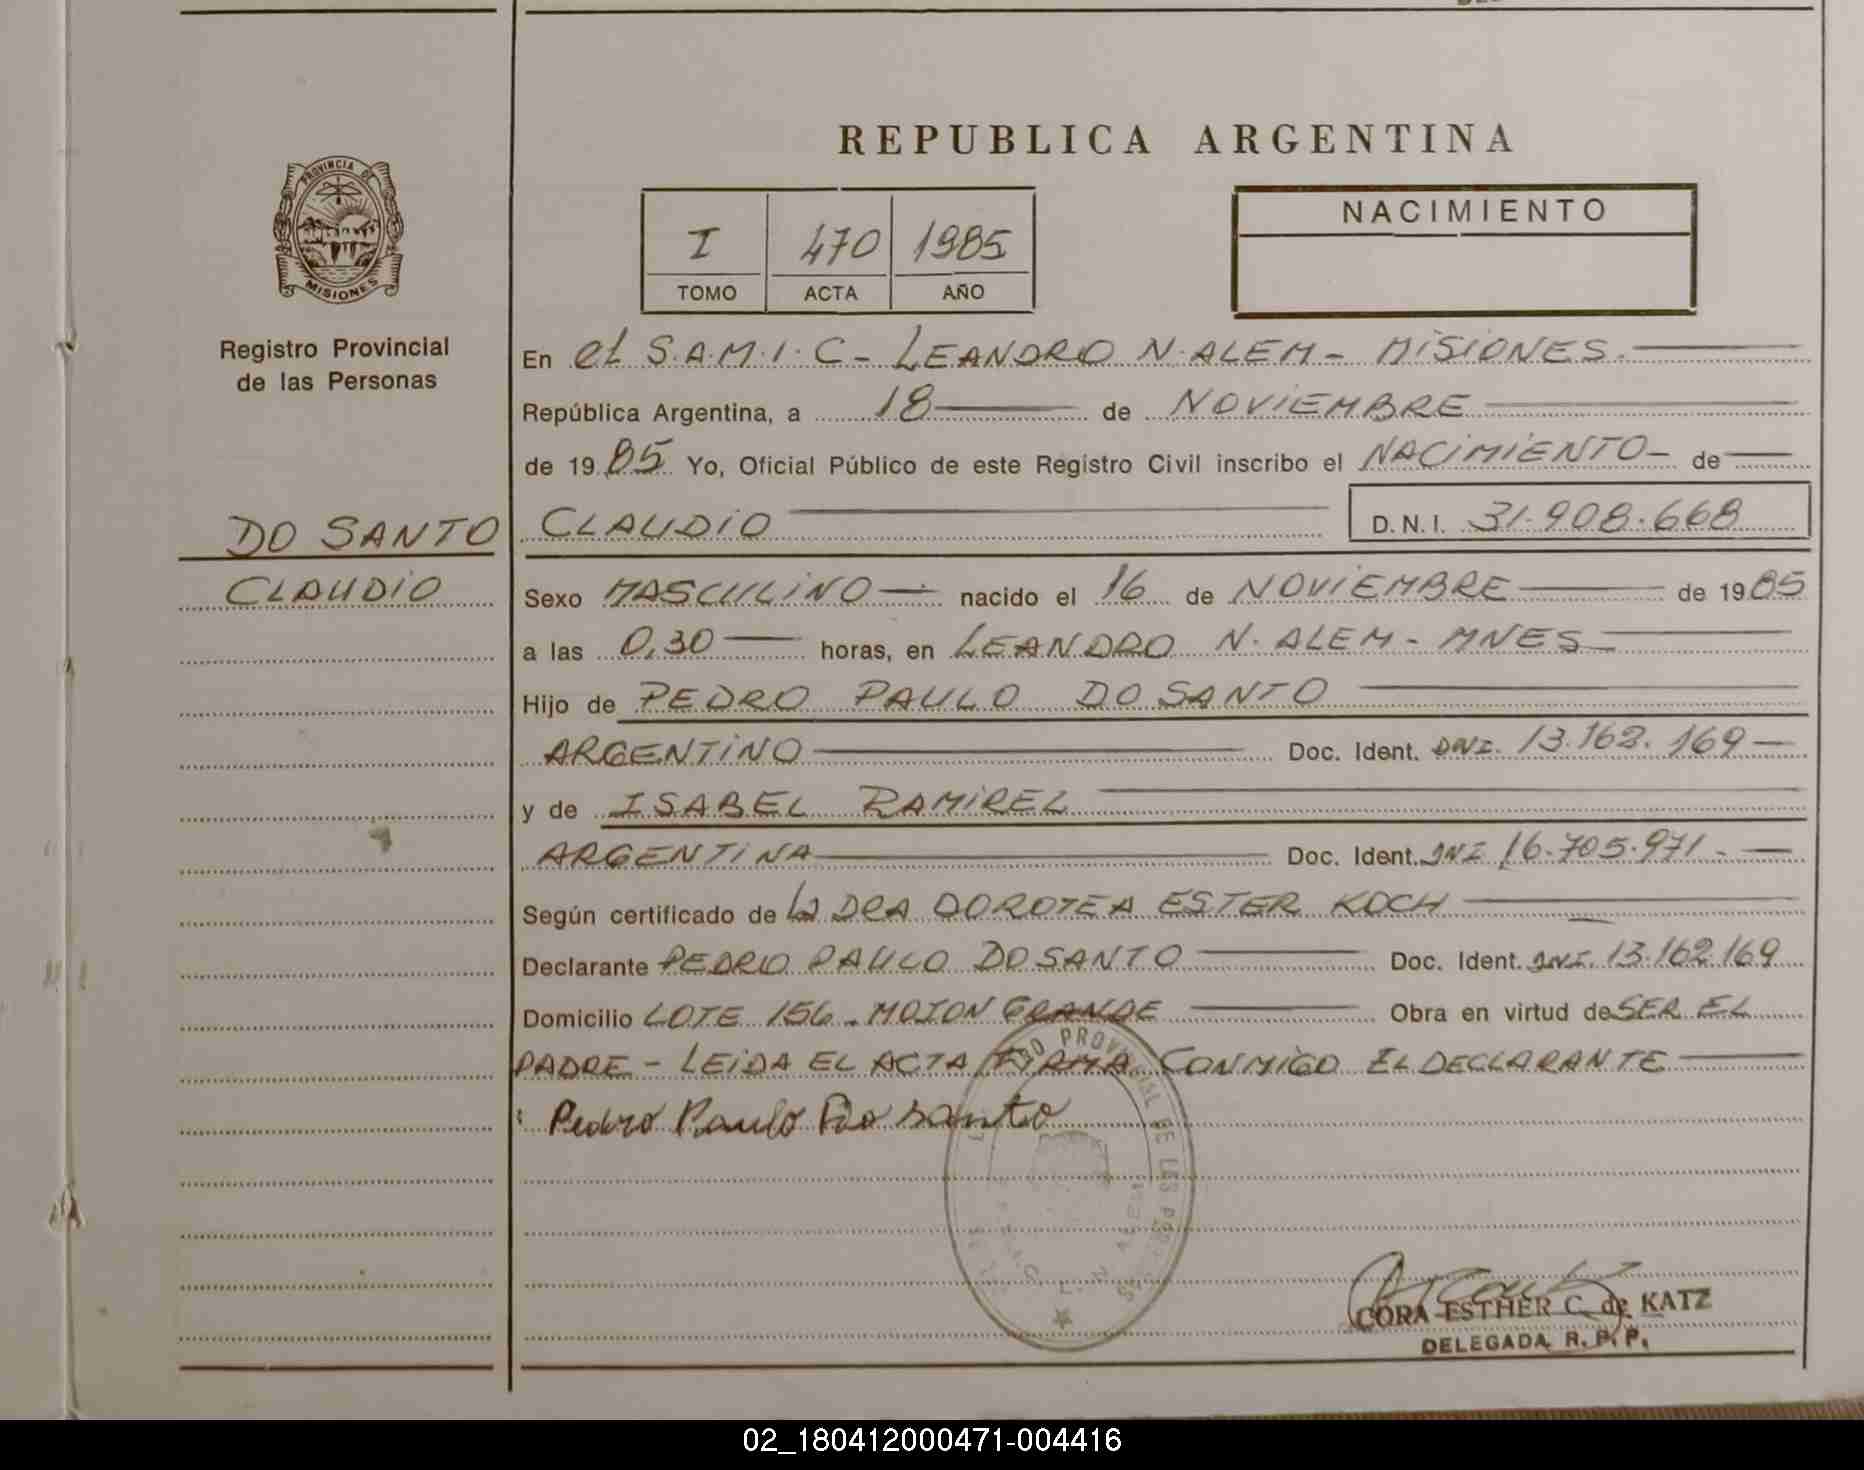 REPUBLICA ARGENTINA
PROVINCIA DE
MISIONES
Registro Provincial
de las Personas
I 470 1985
TOMO ACTA AÑO
NACIMIENTO
En el S.A.M.I.C - LEANDRO N. ALEM - MISIONES.
República Argentina, a 18 de NOVIEMBRE
de 1985 Yo, Oficial Público de este Registro Civil inscribo el NACIMIENTO - de
DO SANTO CLAUDIO D.N.I. 31.908.668
CLAUDIO
Sexo MASCULINO nacido el 16 de NOVIEMBRE de 1985
a las 0,30 horas, en LEANDRO N. ALEM - MNES
Hijo de PEDRO PAULO DO SANTO
ARGENTINO Doc. Ident. DNI. 13.162.169
y de ISABEL RAMIREZ
ARGENTINA Doc. Ident. DNI 16.705.971.
Según certificado de la DRA DOROTEA ESTER KOCH
Declarante PEDRO PAULO DO SANTO Doc. Ident. DNI. 13.162.169
Domicilio LOTE 156 - MOJON GRANDE Obra en virtud de SER EL
PADRE - LEIDA EL ACTA FIRMA CONMIGO EL DECLARANTE
Pedro Paulo Do santo
PROVINCIAL DE LAS
CORA ESTHER C. de KATZ
DELEGADA R. P. P.
02_180412000471-004416